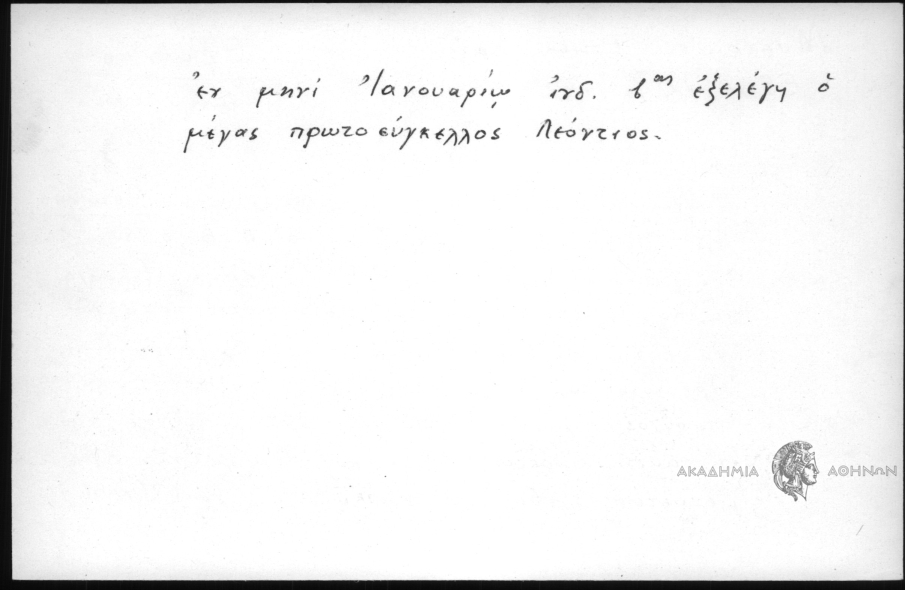 ἐν μηνί Ἰανουαρίῳ ἰνδ. β<sup>ας</sup> ἐξελέγη ὁ
μέγας πρωτοσύγκελλος Λεόντιος.
ΑΚΑΔΗΜΙΑ ΑΘΗΝΩΝ